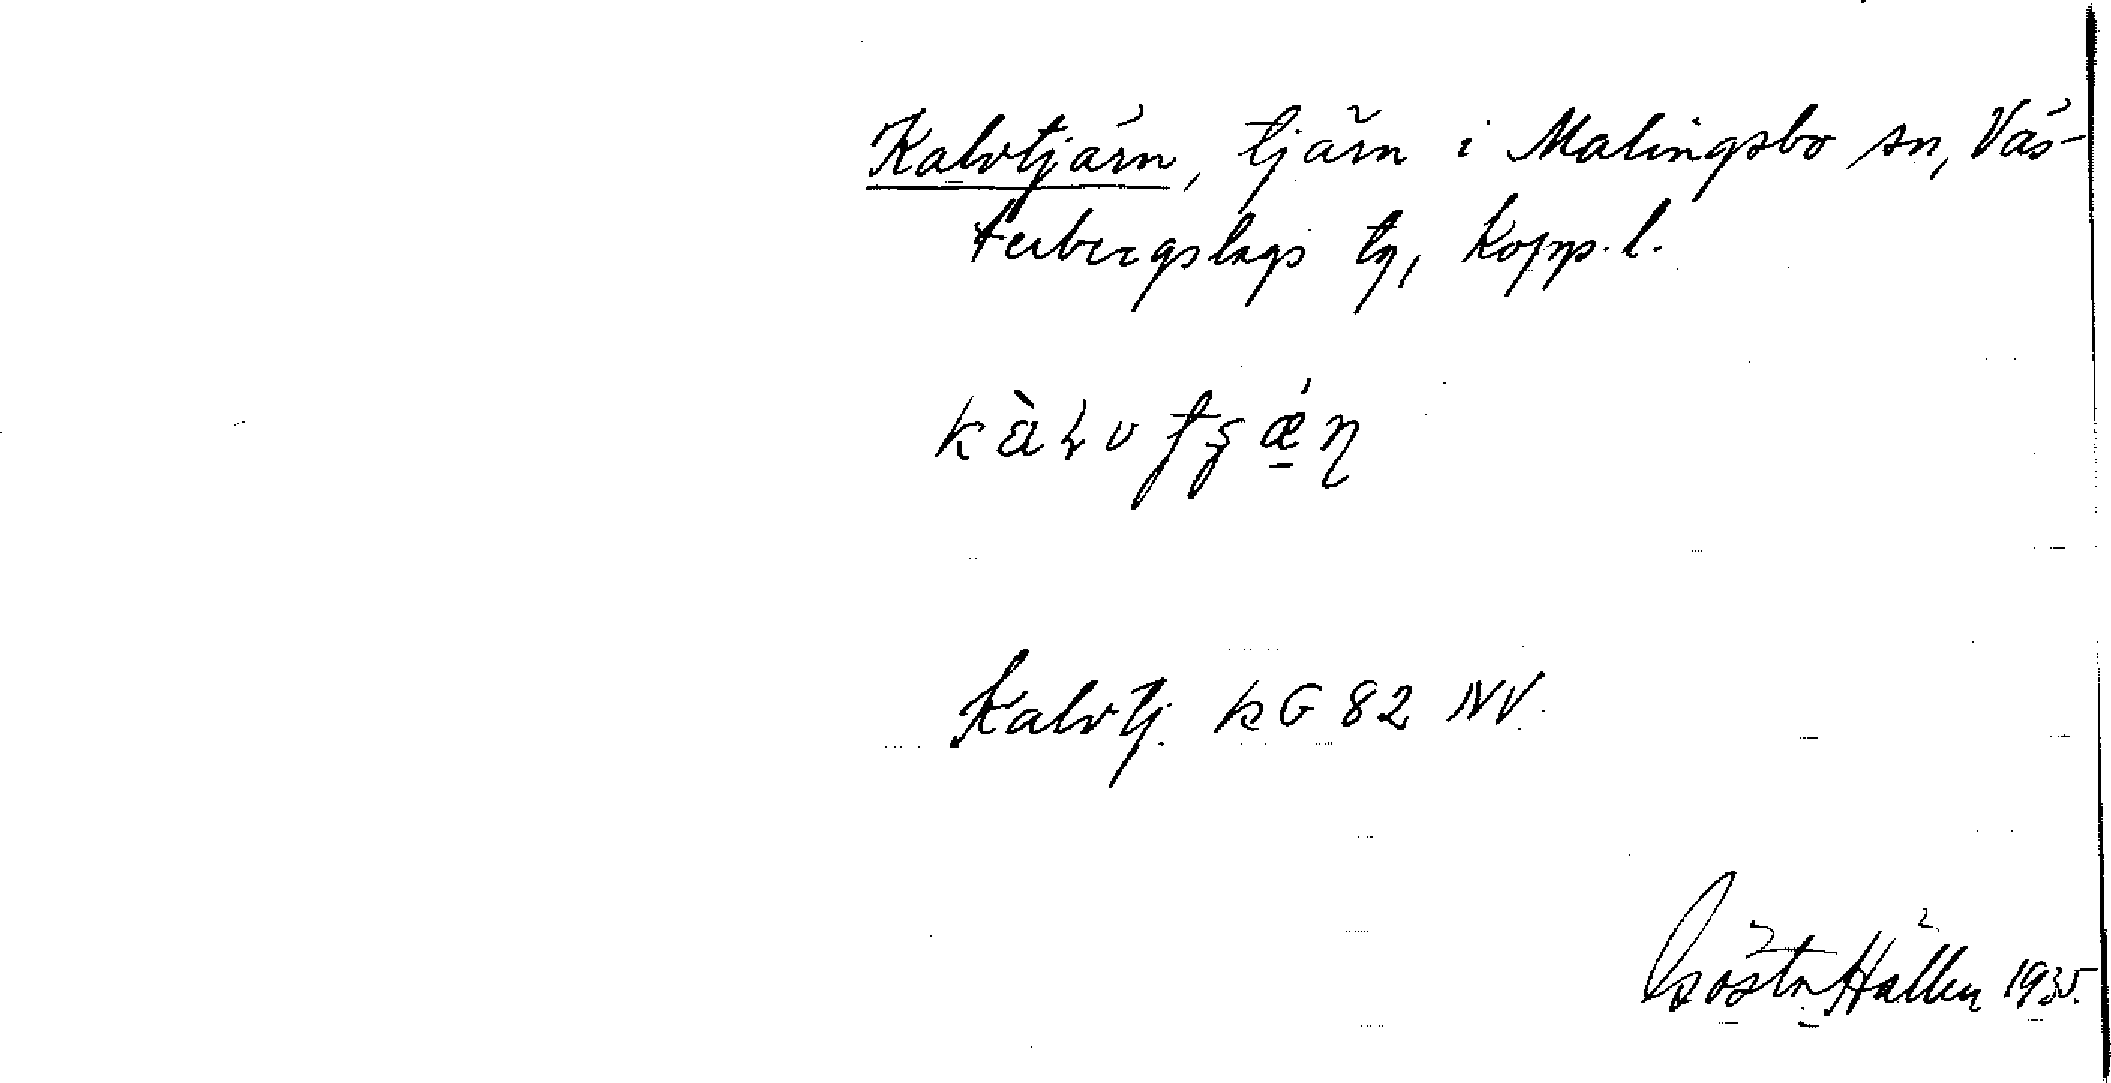 Kalvtjärn, tjärn i Malingsbo sn, Väs-
terbergslags tg, Kopp. l.
Kalvtj. kG 82 NV.
Gösta Hållen 1935.